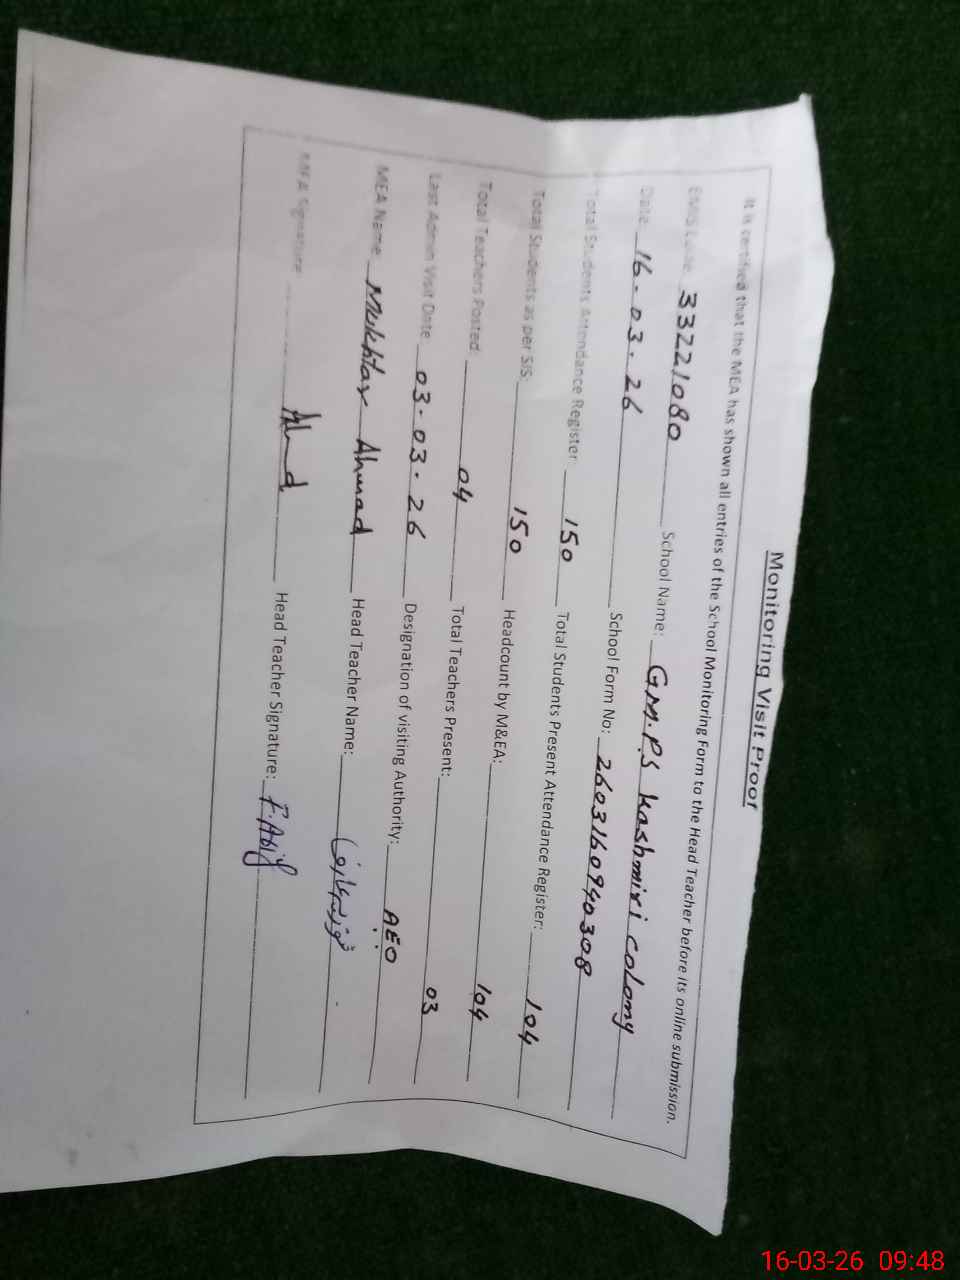 Monitoring Visit Proof
It is certified that the MEA has shown all entries of the School Monitoring Form to the Head Teacher before its online submission.
EMIS Code 33221080 School Name: G.M.P.S Kashmiri Colony
Date 16.03.26 School Form No: 2603160940308
Total Students Attendance Register 150 Total Students Present Attendance Register: 104
Total Students as per SIS: 150 Headcount by M&EA: 104
Total Teachers Posted: 04 Total Teachers Present: 03
Last Admin Visit Date 03.03.26 Designation of visiting Authority: AEO
MEA Name Mukhtar Ahmad Head Teacher Name:
MEA Signature Head Teacher Signature:
16-03-26 09:48